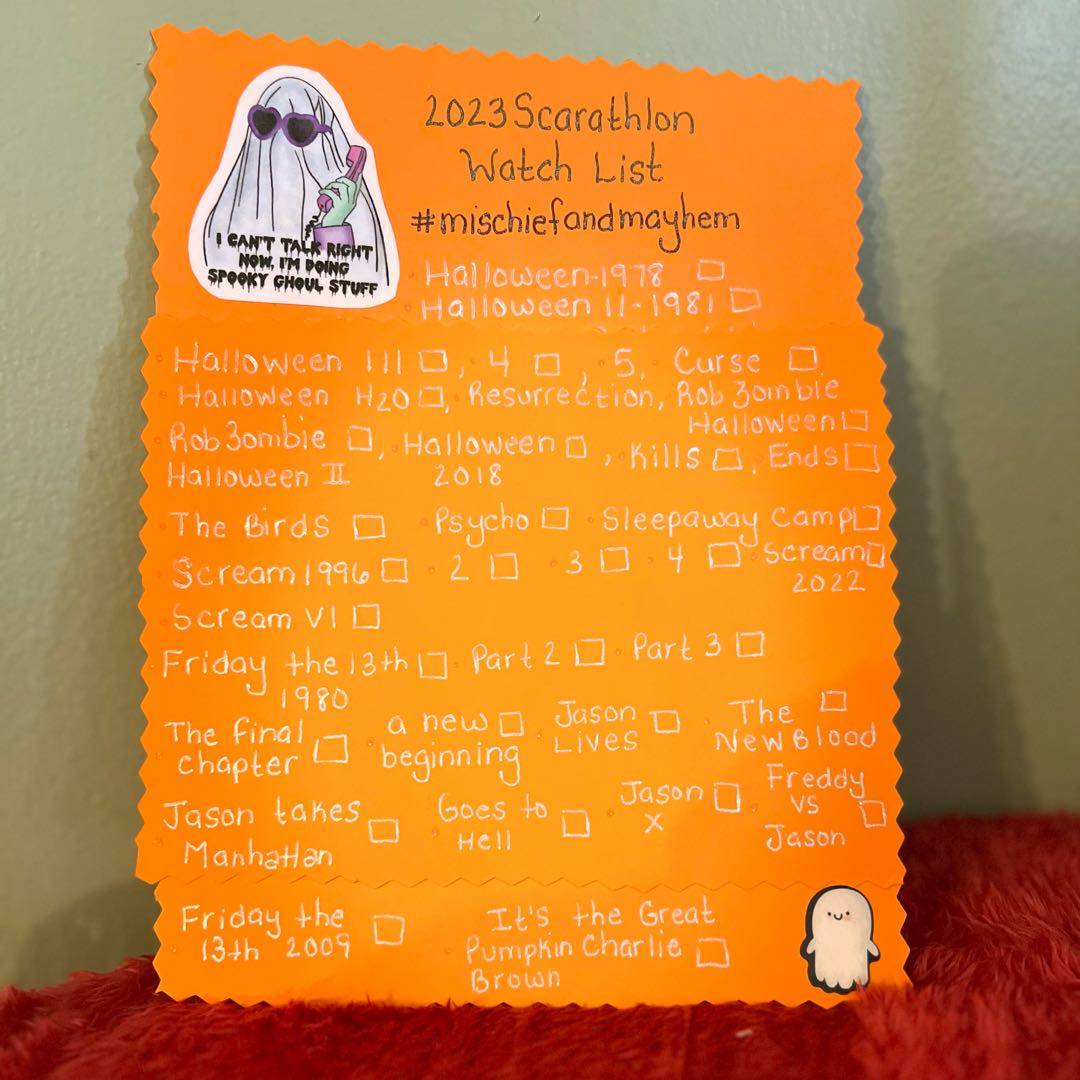 2023 Scarathlon
Watch List
#mischiefandmayhem
I CAN'T TALK RIGHT
NOW, I'M DOING
SPOOKY GHOUL STUFF
Halloween-1978
Halloween 11-1981
Halloween 111, 4, 5, Curse
Halloween H20, Resurrection, Rob Zombie
Halloween
Rob Zombie, Halloween, Kills, Ends
Halloween II 2018
The Birds Psycho Sleepaway Camp
Scream 1996 2 3 4 Scream
2022
Scream VI
Friday the 13th Part 2 Part 3
1980
The final a new Jason The
chapter beginning Lives New Blood
Jason takes Goes to Jason Freddy
Manhattan Hell X vs
Jason
Friday the It's the Great
13th 2009 Pumpkin Charlie
Brown